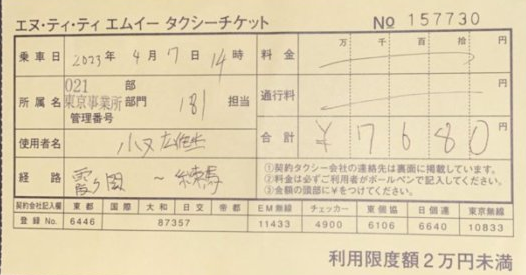 エヌ・ティ・ティ エムイー タクシーチケット
No 157730
乗車日 2023年 4月 7日 14時
料金 万 千 百 十 円
所属名 021 部
東京事業所 部門 181 担当
管理番号
通行料 円
使用者名
合計 ¥7680 円
経路 霞ヶ関 ~ 練馬
①契約タクシー会社の連絡先は裏面に掲載しています。
②料金は必ずご利用者がボールペンで記入してください。
③金額の頭部に¥をつけてください。
契約会社記入欄 東都 国際 大和 日交 帝都 EM無線 チェッカー 東個協 日個連 東京無線
登録No. 6446 87357 11433 4900 6106 6640 10833
利用限度額2万円未満